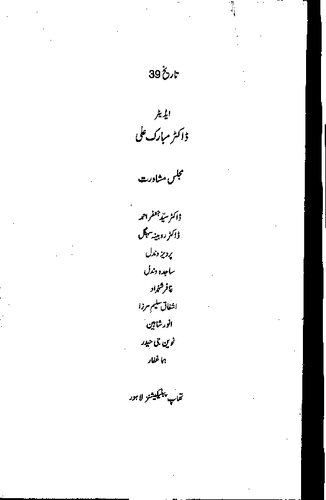 تاریخ 39
ایڈیٹر
ڈاکٹر مبارک علی
مجلس مشاورت
ڈاکٹر سید جعفر احمد
ڈاکٹر روبینہ سہگل
پرویز وندل
ساجدہ وندل
غافر شہزاد
اشفاق سلیم مرزا
انور شاہین
نوین جی حیدر
ہما غفار
تھاپ پبلیکیشنز لاہور